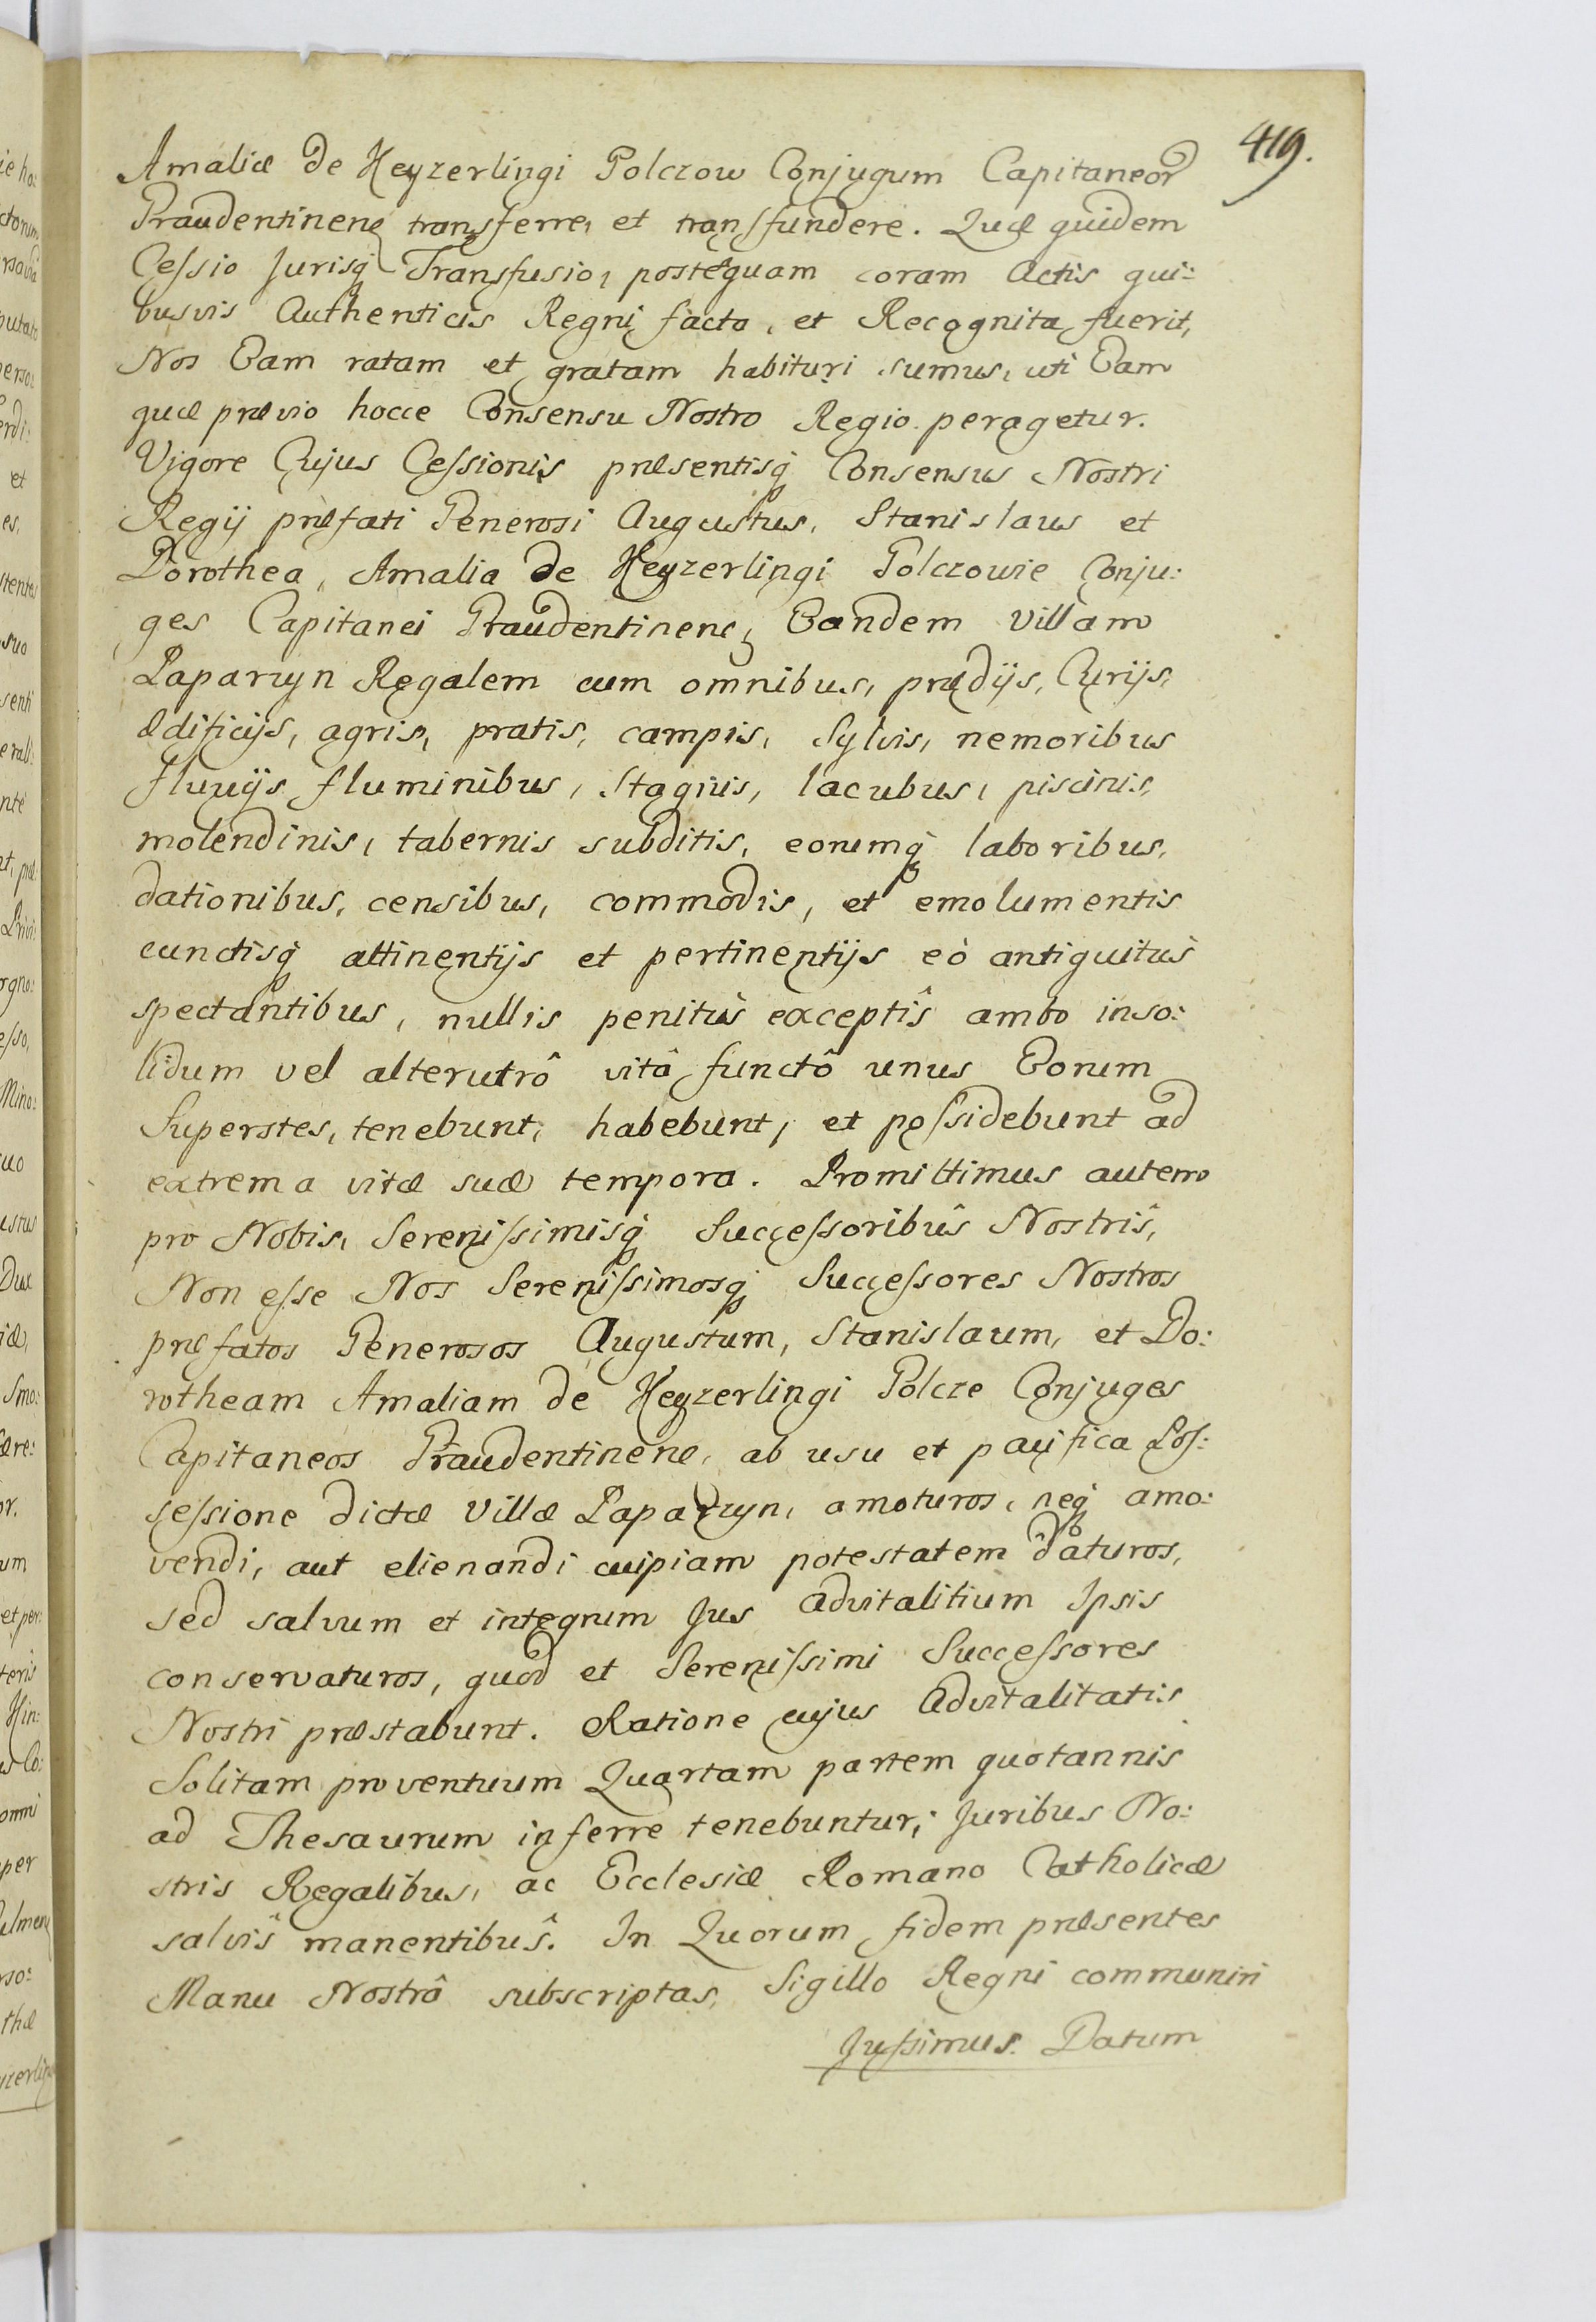 419.
Amaliæ de Keyzerlingi Golczow Conjugum Capitaneor
Graudentinen transferre, et transfundere. Quæ quidem
Cessio Jurisq Transfusio, posteaquam coram Actis qui:
busvis Authenticis Regni facta, et Recognita fuerit,
Nos Eam ratam et gratam habituri sumus, uti Eam
quæ prævio hocce Consensu Nostro Regio peragetur.
Vigore Cujus Cessionis præsentisq Consensus Nostri
Regij præfati Generosi Augustus, Stanislaus et
Dorothea, Amalia de Keyzerlingi Golczowie Conju:
ges Capitanei Graudentinenẽ Eandem Villam
Paparzyn Regalem cum omnibus, prædijs, Curijs,
ædificijs, agris, pratis, campis, Sylvis, nemoribus
fluvijs fluminibus, Stagnis, lacubus, piscinis,
molendinis, tabernis subditis, eorumq laboribus,
dationibus, censibus, commodis, et emolumentis
cunctisq attinentijs et pertinentijs eò antiquitùs
spectantibus, nullis penitùs exceptîs ambo inso:
lidum vel alterutrô vitâ functô unus Eorum
Superstes, tenebunt, habebunt, et possidebunt ad
extrema vitæ suæ tempora. Promittimus autem
pro Nobis, Serenissimisq Successoribûs Nostrîs,
Non esse Nos Serenissimosq Successores Nostros
præfatos Generosos Augustum, Stanislaum, et Do:
rotheam Amaliam de Keyzerlingi Golcze Conjuges
Capitaneos Graudentinenẽ, ab usu et pacifica Pos:
sessione dictæ Villæ Paparzyn, amoturos, neq amo:
vendi, aut elienandi cuipiam potestatem daturos,
sed salvum et integrum Jus advitalitium Ipsis
conservaturos, quod et Serenissimi Successores
Nostri præstabunt. Ratione cujus advitalitatis
Solitam proventuum Quartam partem quotannis
ad Thesaurum inferre tenebuntur; Juribus No:
stris Regalibus, ac Ecclesiæ Romano Catholicæ
salvîs manentibûs. In Quorum fidem præsentes
Manu Nostrâ subscriptas, Sigillo Regni communiri
Jussimus. Datum